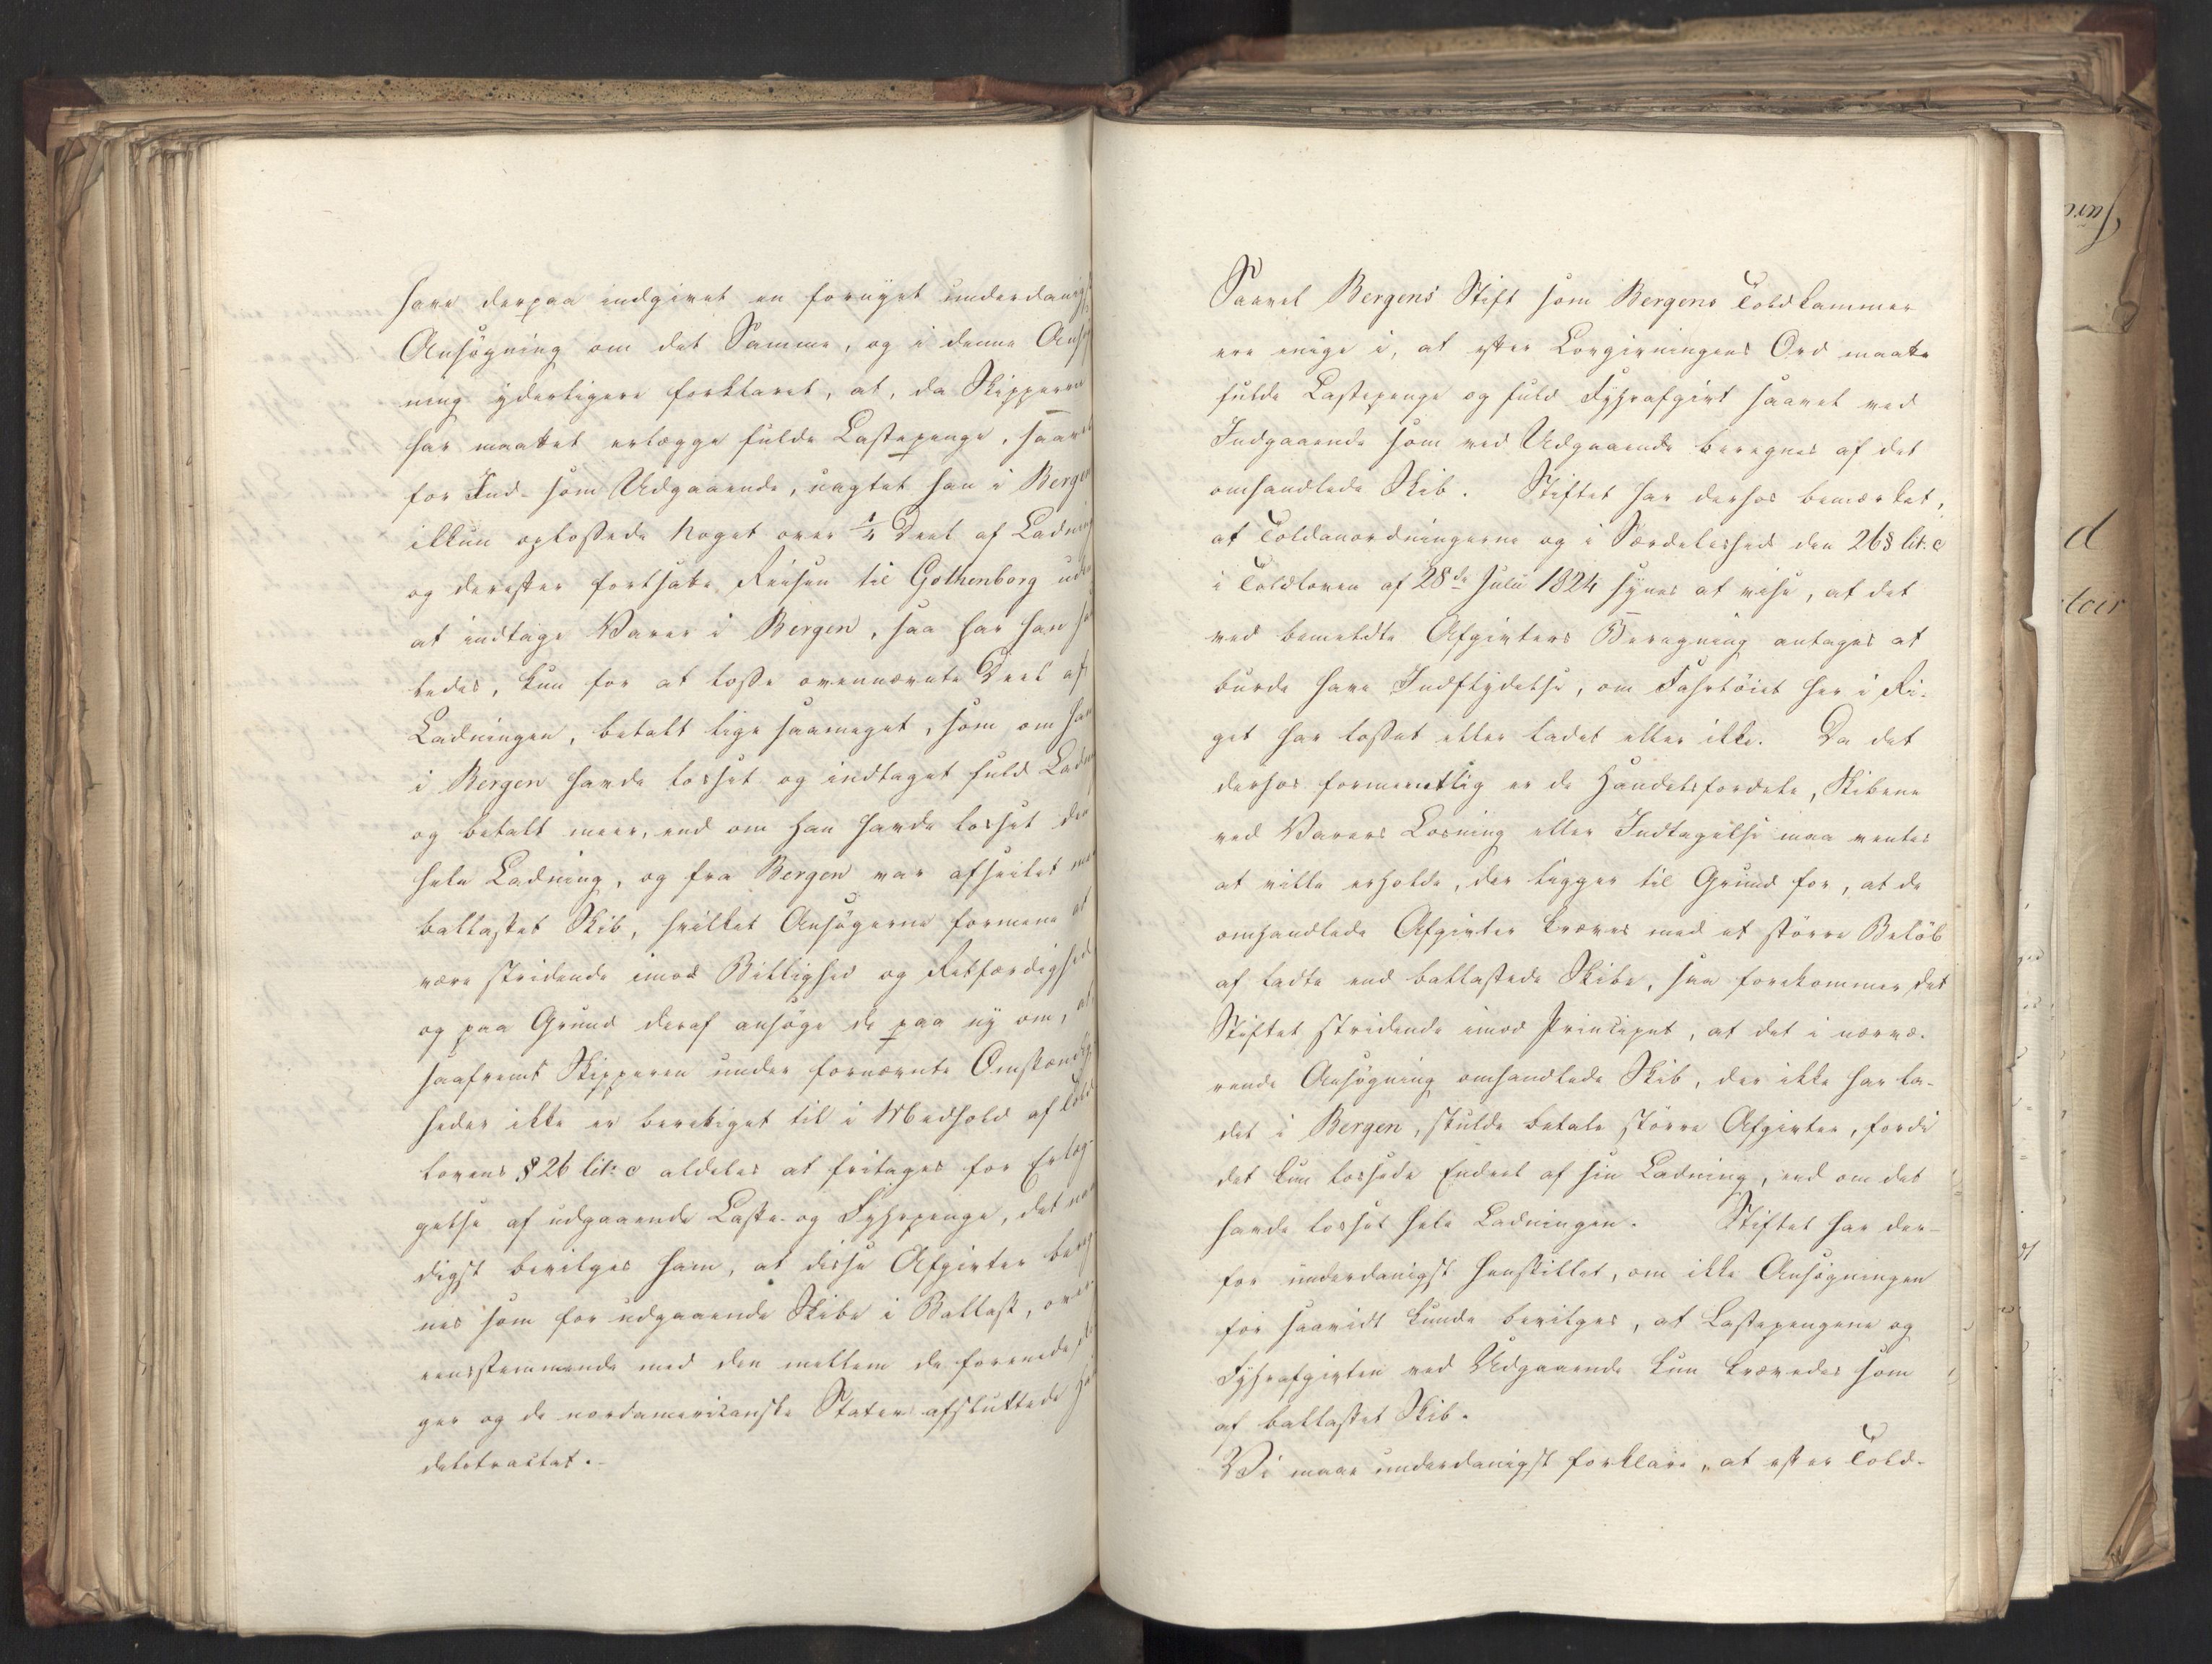 have derpaa indgivet en fornyet underdanigst
Ansøgning om det Samme, og i denne Ansøg
ning yderligere forklaret, at, da Skipperen
har maattet erlægge fulde Lastepenge, saavel
for Ind- som Udgaaende, uagtet han i Bergen
ikkun oplossede Noget over ¼ Deel af Ladning
og derefter fortsatte Reisen til Gothenborg uden
at indtage Varer i Bergen, saa har han saa
ledes, kun for at losse ovennævnte Deel af
Ladningen, betalt lige saameget, som om han
i Bergen havde losset og indtaget fuld Ladn
og betalt meer, end om han havde losset den
hele Ladning, og fra Bergen var afseilet med
ballastet Skib, hvilket Ansøgerne formene at
være stridende imod Billighed og Retfærdighed
og paa Grund deraf ansøge de paa ny om, at
saafremt Skipperen under fornævnte Omstændig
heder ikke er berettiget til i Medhold af Told
lovens § 26 lit: c aldeles at fritages for Erlæg-
gelse af udgaaende Laste- og Fyhrpenge, det naa
digst bevilges ham, at disse Afgivter bereg
nes som for udgaaende Skibe i Ballast, over
eensstemmende med den mellem de forenede Ri
ger og de nordamericanske Stater afsluttede Han
delstractat.-
Saavel Bergens Stift som Bergens Toldkammer
ere enige i, at efter Lovgivningens Ord maatte
fulde Lastepenge og fuld Fyhrafgivt saavel ved
Indgaaende som ved Udgaaende beregnes af det
omhandlede Skib. Stiftet har derhos bemærket,
at Toldanordningerne og i Særdeleshed den 26 § lit: c
i Toldloven af 28de Julii 1824 synes at vise, at det
ved bemeldte Afgivters Beregning antages at
burde have Indflydelse, om Fahrtöiet her i Ri-
get har losset eller ladet eller ikke. Da det
derhos formeentlig er de Handelsfordele, Skibene
ved Varers Losning eller Indtagelse maa ventes
at ville erholde, der ligger til Grund for, at de
omhandlede Afgivter kræves med et större Belöb
af ladte end ballastede Skibe, saa forekommer det
Stiftet stridende imod Principet, at det i nærvæ-
rende Ansøgning omhandlede Skib, der ikke har la-
det i Bergen, skulde betale större Afgivter, fordi
det kun lossede Endeel af sin Ladning, end om det
havde losset hele Ladningen. Stiftet har der-
for underdanigst henstillet, om ikke Ansøgningen
for saavidt kunde bevilges, at Lastepengene og
Fyhrafgivten ved Udgaaende kun krævedes som
af ballastet Skib.
Vi maae underdanigst forklare, at efter Told-